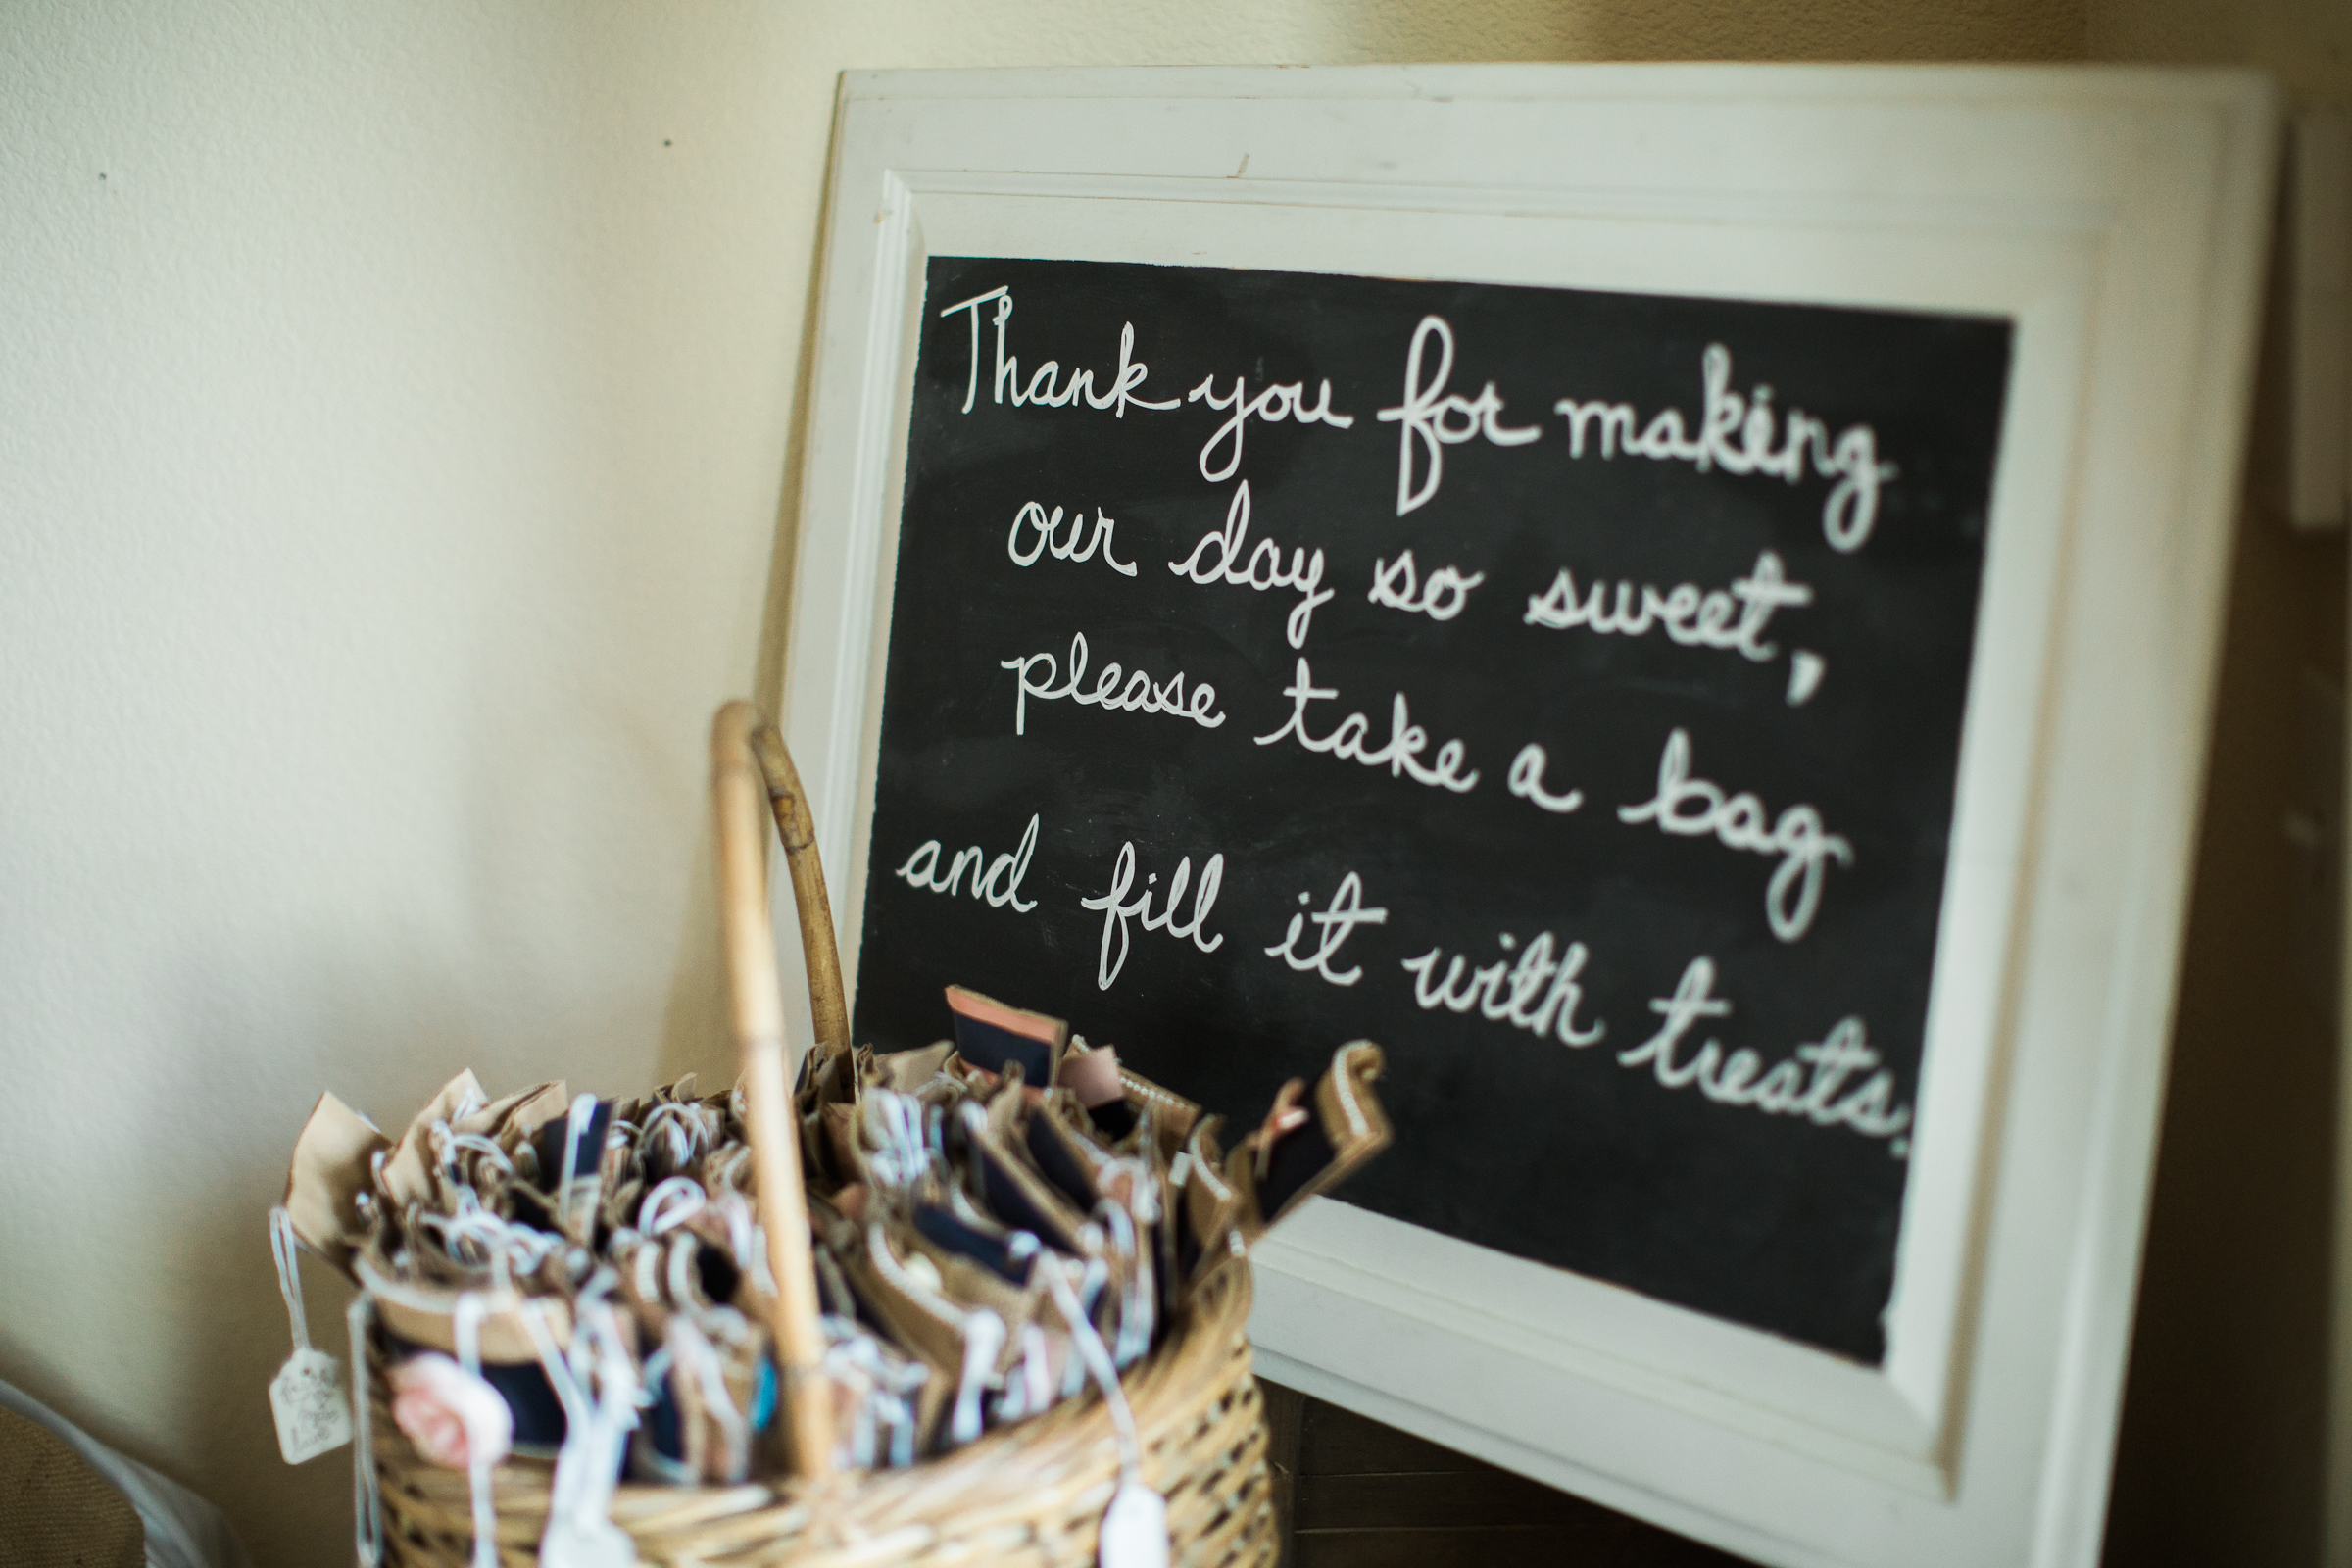 Thank you for making
our day so sweet,
please take a bag
and fill it with treats.